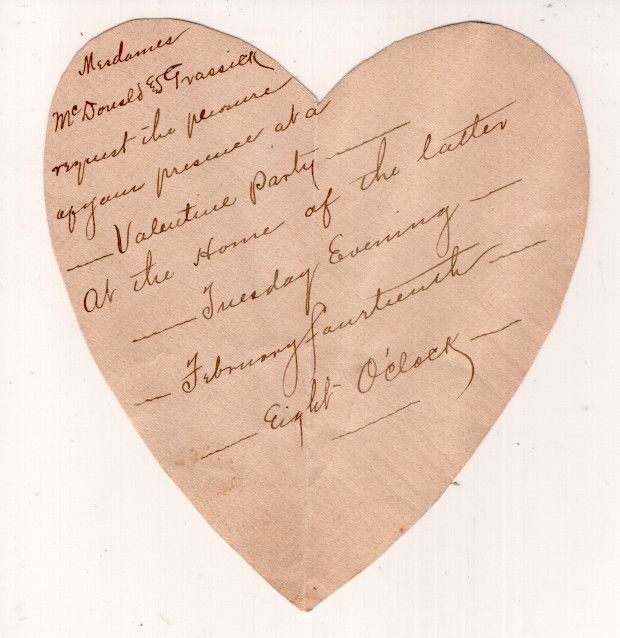 Mesdames
McDonald & Trassick
request the pleasure
of your presence at a
— Valentine Party —
At the Home of the latter
— Tuesday Evening —
— February fourteenth —
— Eight O'clock —